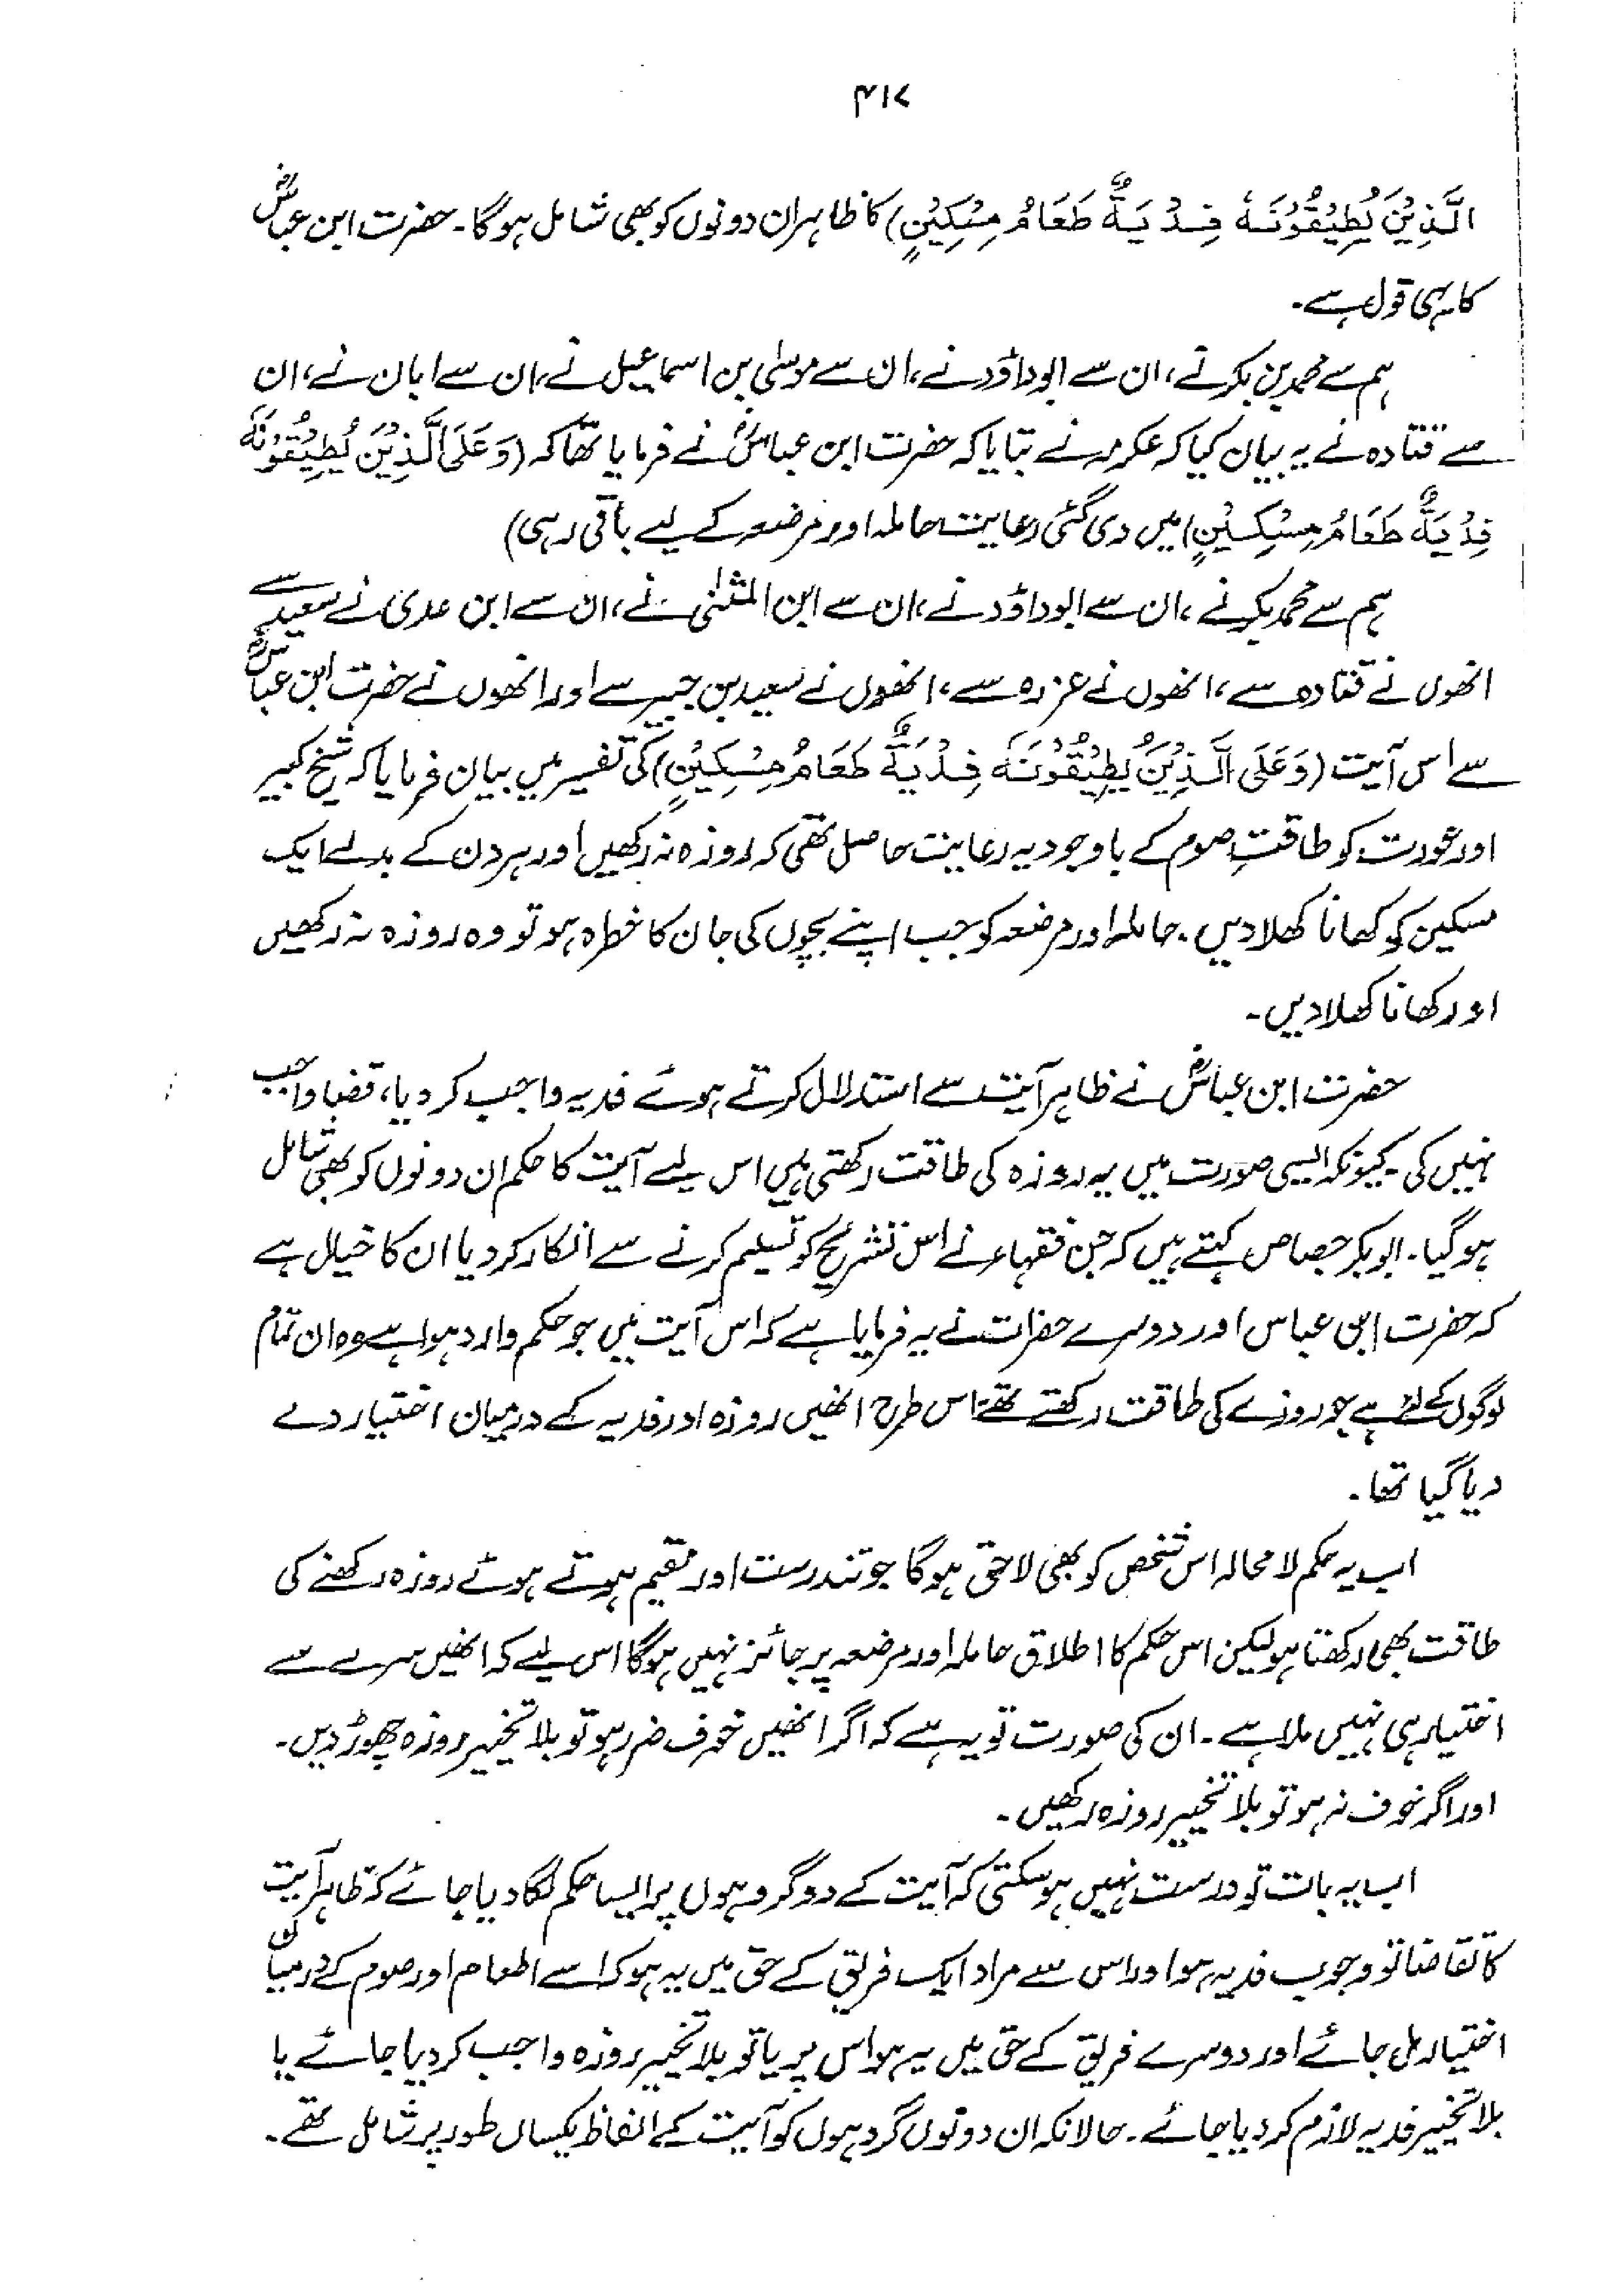 ۴۱۷
الَّذِيْنَ يُطِيْقُوْنَهٗ فِدْيَةٌ طَعَامُ مِسْكِيْنٍ) کا ظاہر ان دونوں کو بھی شامل ہوگا۔ حضرت ابن عباسؓ
کا یہی قول ہے۔
ہم سے محمد بن بکر نے، ان سے ابوداؤد نے، ان سے موسیٰ بن اسماعیل نے، ان سے ابان نے، ان
سے قتادہ نے یہ بیان کیا کہ عکرمہ نے بتایا کہ حضرت ابن عباسؓ نے فرمایا تھا کہ (وَعَلَى الَّذِيْنَ يُطِيْقُوْنَهٗ
فِدْيَةٌ طَعَامُ مِسْكِيْنٍ) میں دی گئی رعایت حاملہ اور مرضعہ کے لیے باقی رہی)
ہم سے محمد بکر نے، ان سے ابوداؤد نے، ان سے ابن المثنٰی نے، ان سے ابن عدی نے سعید سے
انھوں نے قتادہ سے، انھوں نے عزرہ سے، انھوں نے سعید بن جبیر سے اور انھوں نے حضرت ابن عباسؓ
سے اس آیت (وَعَلَى الَّذِيْنَ يُطِيْقُوْنَهٗ فِدْيَةٌ طَعَامُ مِسْكِيْنٍ) کی تفسیر میں بیان فرمایا کہ شیخ کبیر
اور عورت کو طاقتِ صوم کے باوجود یہ رعایت حاصل تھی کہ روزہ نہ رکھیں اور ہر دن کے بدلے ایک
مسکین کو کھانا کھلا دیں۔ حاملہ اور مرضعہ کو جب اپنے بچوں کی جان کا خطرہ ہو تو وہ روزہ نہ رکھیں
اور کھانا کھلا دیں۔
حضرت ابن عباسؓ نے ظاہر آیت سے استدلال کرتے ہوئے فدیہ واجب کر دیا، قضا واجب
نہیں کی۔ کیونکہ ایسی صورت میں یہ روزہ کی طاقت رکھتی ہیں اس لیے آیت کا حکم ان دونوں کو بھی شامل
ہو گیا۔ ابوبکر جصاص کہتے ہیں کہ جن فقہاء نے اس تشریح کو تسلیم کرنے سے انکار کر دیا ان کا خیال ہے
کہ حضرت ابن عباس اور دوسرے حضرات نے یہ فرمایا ہے کہ اس آیت میں جو حکم وارد ہوا ہے وہ ان تمام
لوگوں کے لئے ہے جو روزے کی طاقت رکھتے تھے اس طرح انھیں روزہ اور فدیہ کے درمیان اختیار دے
دیا گیا تھا۔
اب یہ حکم لامحالہ اس شخص کو بھی لاحق ہوگا جو تندرست اور مقیم ہوتے ہوئے روزہ رکھنے کی
طاقت بھی رکھتا ہو لیکن اس حکم کا اطلاق حاملہ اور مرضعہ پر جائز نہیں ہوگا اس لیے کہ انھیں سرے سے
اختیار ہی نہیں ملا ہے۔ ان کی صورت تو یہ ہے کہ اگر انھیں خوف ضرر ہو تو بلا تخییر روزہ چھوڑ دیں۔
اور اگر خوف نہ ہو تو بلا تخییر روزہ رکھیں۔
اب یہ بات تو درست نہیں ہو سکتی کہ آیت کے دو گروہوں پر ایسا حکم لگا دیا جائے کہ ظاہر آیت
کا تقاضا تو وجوب فدیہ ہو اور اس سے مراد ایک فریق کے حق میں یہ ہو کہ اسے اطعام اور صوم کے درمیان
اختیار مل جائے اور دوسرے فریق کے حق میں یہ ہو اس پر یا تو بلا تخییر روزہ واجب کر دیا جائے یا
بلا تخییر فدیہ لازم کر دیا جائے۔ حالانکہ ان دونوں گروہوں کو آیت کے الفاظ یکساں طور پر شامل تھے۔